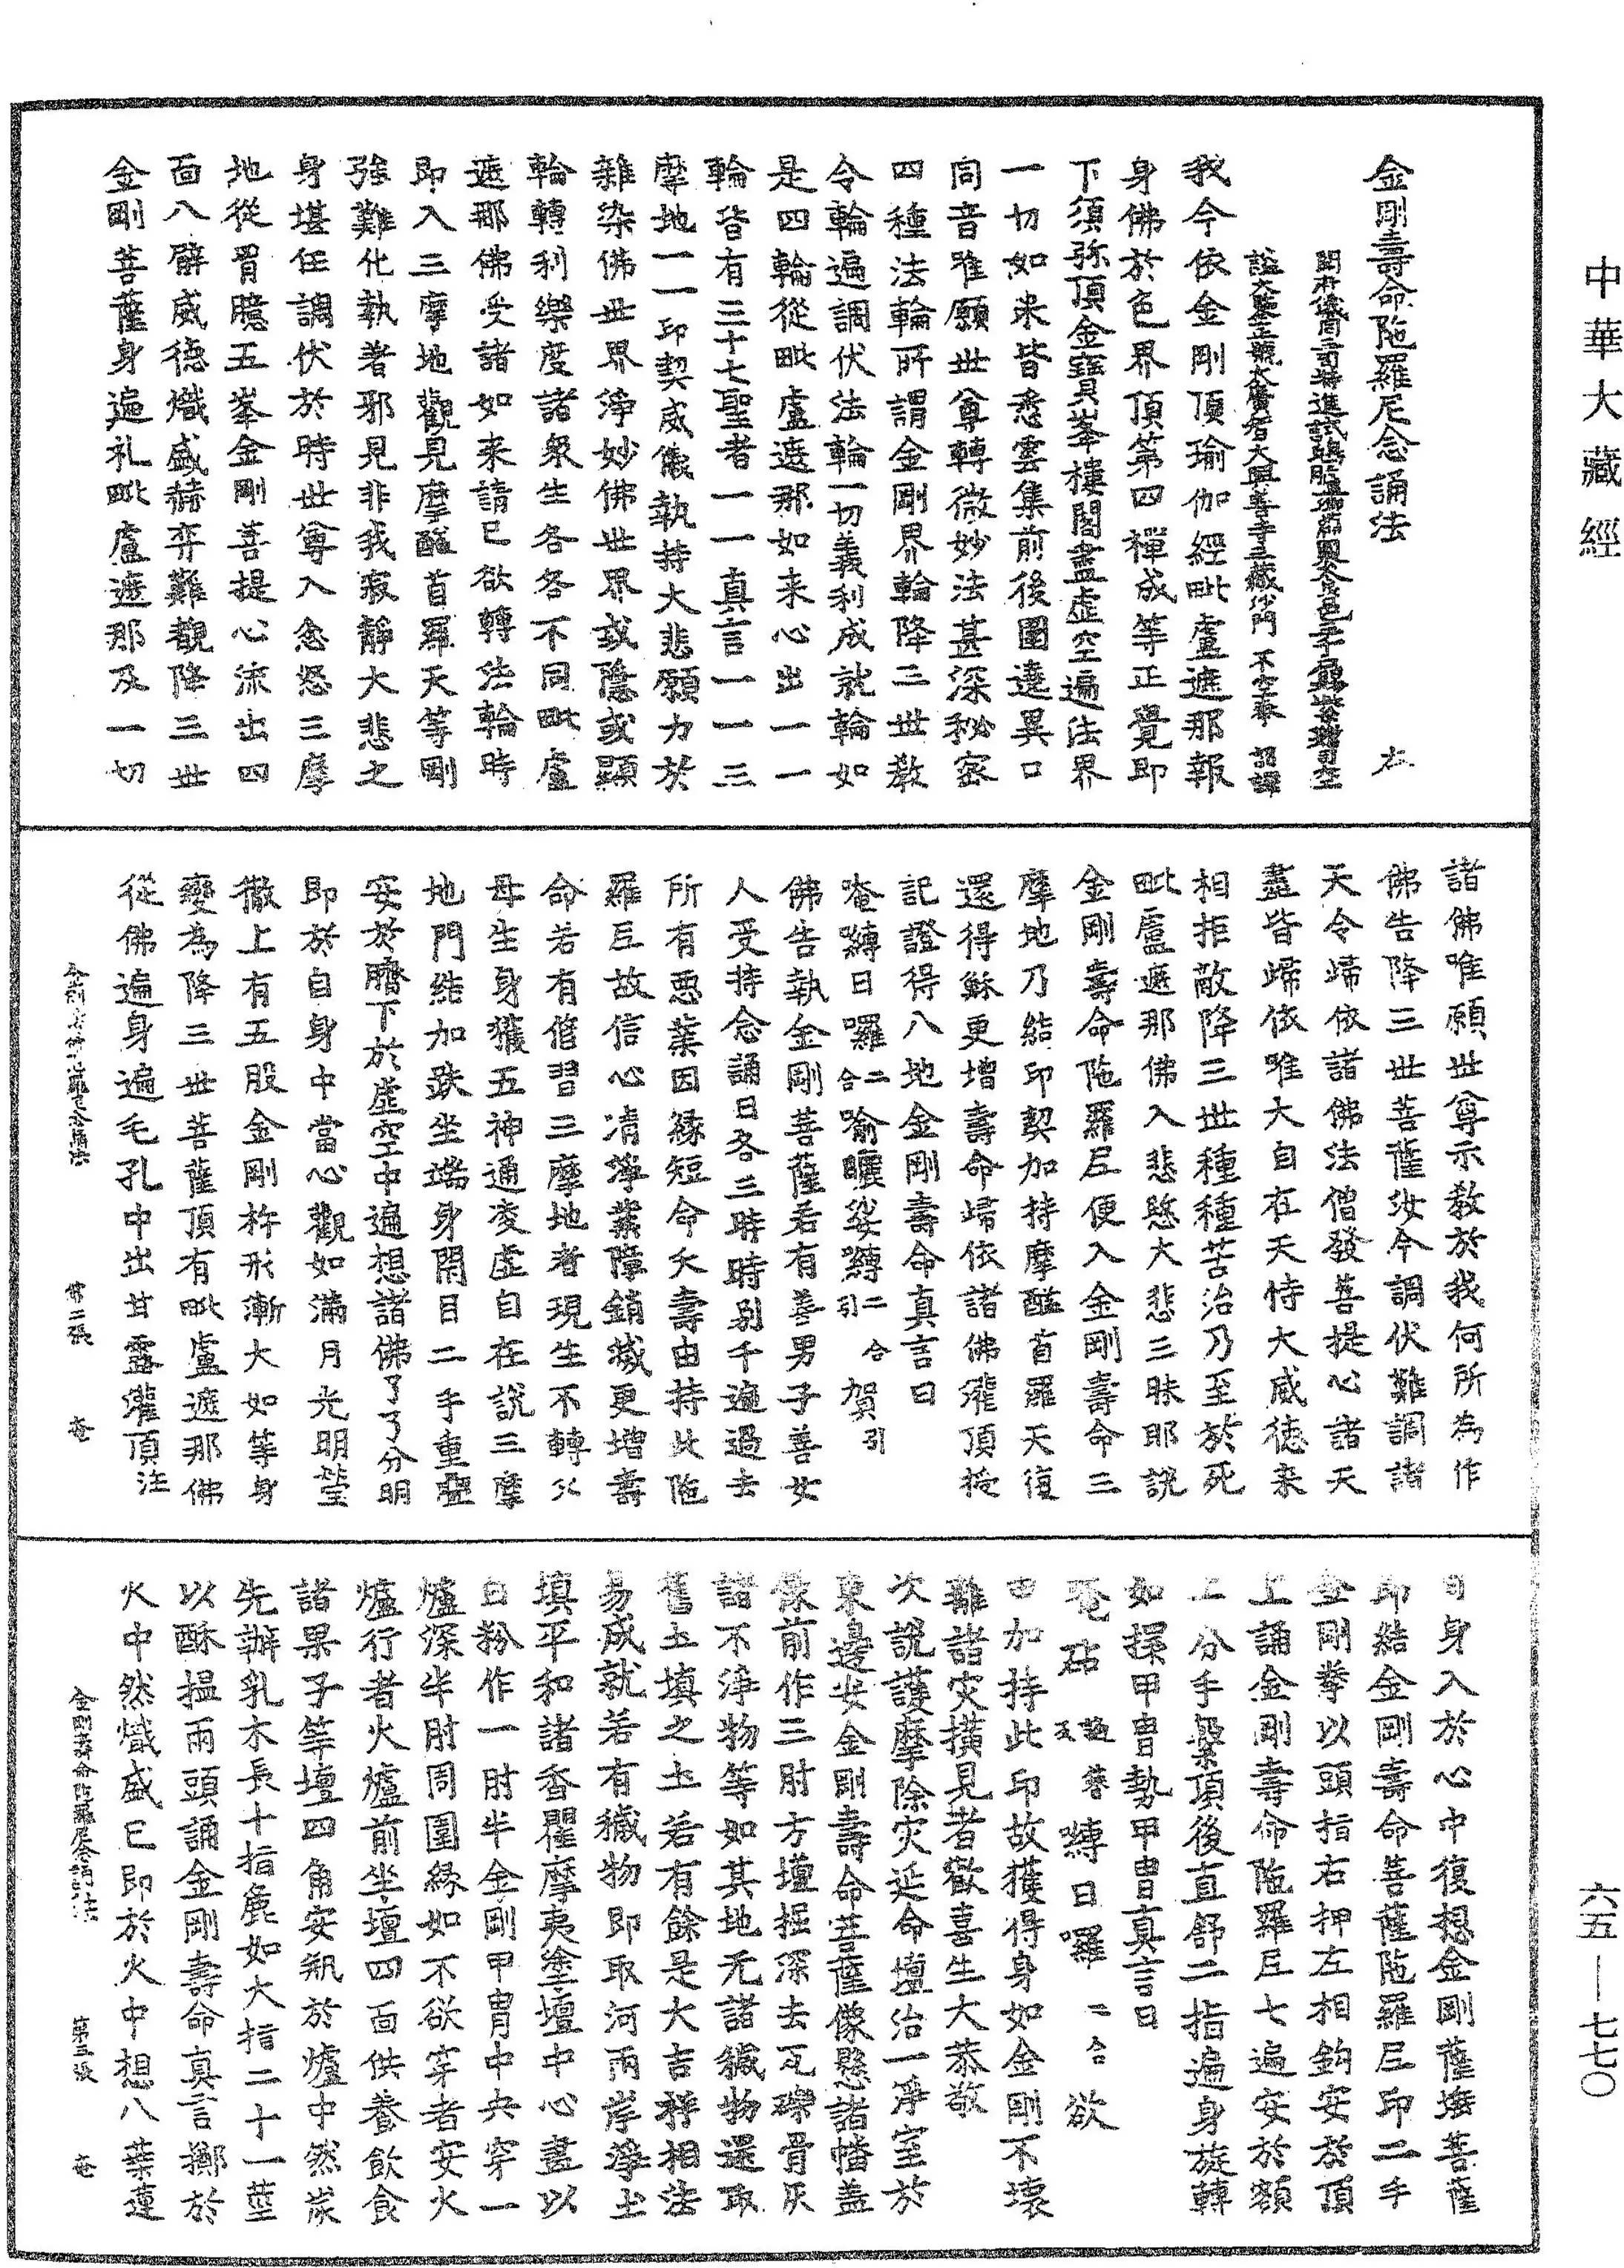 中華大藏經
金剛壽命陁羅尼念誦法
開府儀同三司特進試鴻臚卿肅國公食邑三千戶賜紫贈司空
謚大鑒正號大廣智大興善寺三藏沙門不空奉 詔譯
我今依金剛頂瑜伽經毗盧遮那報
身佛於色界頂第四禪成等正覺即
下須弥頂金寶峯樓閣盡虛空遍法界
一切如来皆悉雲集前後圍遶異口
同音唯願世尊轉微妙法甚深秘密
四種法輪所謂金剛界輪降三世教
令輪遍調伏法輪一切義利成就輪如
是四輪從毗盧遮那如来心出一一
輪皆有三十七聖者一一真言一一三
摩地一一印契威儀執持大悲願力於
雜染佛世界淨妙佛世界或隱或顯
輪轉利樂度諸衆生各各不同毗盧
遮那佛受諸如来請已欲轉法輪時
即入三摩地觀見摩醯首羅天等剛
強難化執著邪見非我寂靜大悲之
身堪任調伏於時世尊入忿怒三摩
地從胷臆五峯金剛菩提心流出四
面八臂威德熾盛赫弈難覩降三世
金剛菩薩身遍礼毗盧遮那及一切
諸佛唯願世尊示教於我何所為作
佛告降三世菩薩汝今調伏難調諸
天令歸依諸佛法僧發菩提心諸天
盡皆歸依唯大自在天恃大威德来
相拒敵降三世種種苦治乃至於死
毗盧遮那佛入悲愍大悲三昧耶說
金剛壽命陁羅尼便入金剛壽命三
摩地乃結印契加持摩醯首羅天復
還得穌更增壽命歸依諸佛灌頂授
記證得八地金剛壽命真言曰
唵嚩日囉二合喻曬娑嚩二合引賀引
佛告執金剛菩薩若有善男子善女
人受持念誦日各三時時別千遍過去
所有惡業因緣短命夭壽由持此陁
羅尼故信心清淨業障銷滅更增壽
命若有俢習三摩地者現生不轉父
母生身獲五神通凌虛自在說三摩
地門結加趺坐端身閉目二手重疊
安於臍下於虛空中遍想諸佛了了分明
即於自身中當心觀如滿月光明瑩
徹上有五股金剛杵形漸大如等身
變為降三世菩薩頂有毗盧遮那佛
從佛遍身遍毛孔中出甘露灌頂注
金剛壽命陁羅尼念誦法 第二張 奄
自身入於心中復想金剛薩埵菩薩
即結金剛壽命菩薩陁羅尼印二手
金剛拳以頭指右押左相鈎安於頂
上誦金剛壽命陁羅尼七遍安於額
上分手繫頂後直舒二指遍身旋轉
如擐甲冑勢甲冑真言曰
唵砧嚩日囉二合欲
由加持此印故獲得身如金剛不壞
離諸灾橫見者歡喜生大恭敬
次說護摩除灾延命壇治一淨室於
東邊安金剛壽命菩薩像懸諸幡盖
像前作三肘方壇掘深去瓦礫骨灰
諸不淨物等如其地无諸穢物還取
舊土填之土若有餘是大吉祥相法
易成就若有穢物即取河兩岸淨土
填平和諸香瞿摩夷塗壇中心畫以
白粉作一肘半金剛甲冑中央穿一
爐深半肘周圍緣如不欲穿者安火
爐行者火爐前坐壇四面供養飲食
諸果子等壇四角安瓶於爐中然炭
先辦乳木長十指麁如大指二十一莖
以酥搵兩頭誦金剛壽命真言擲於
火中然熾盛已即於火中想八葉蓮
金剛壽命陁羅尼念誦法 第三張 奄
六五—七七〇